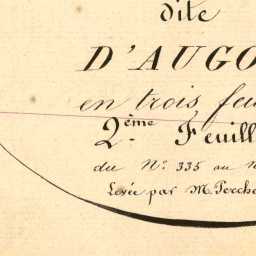 dite
D'AUGO
en trois feu
2.ème Feuill
du N.° 335 au N
Levée par M. Perche